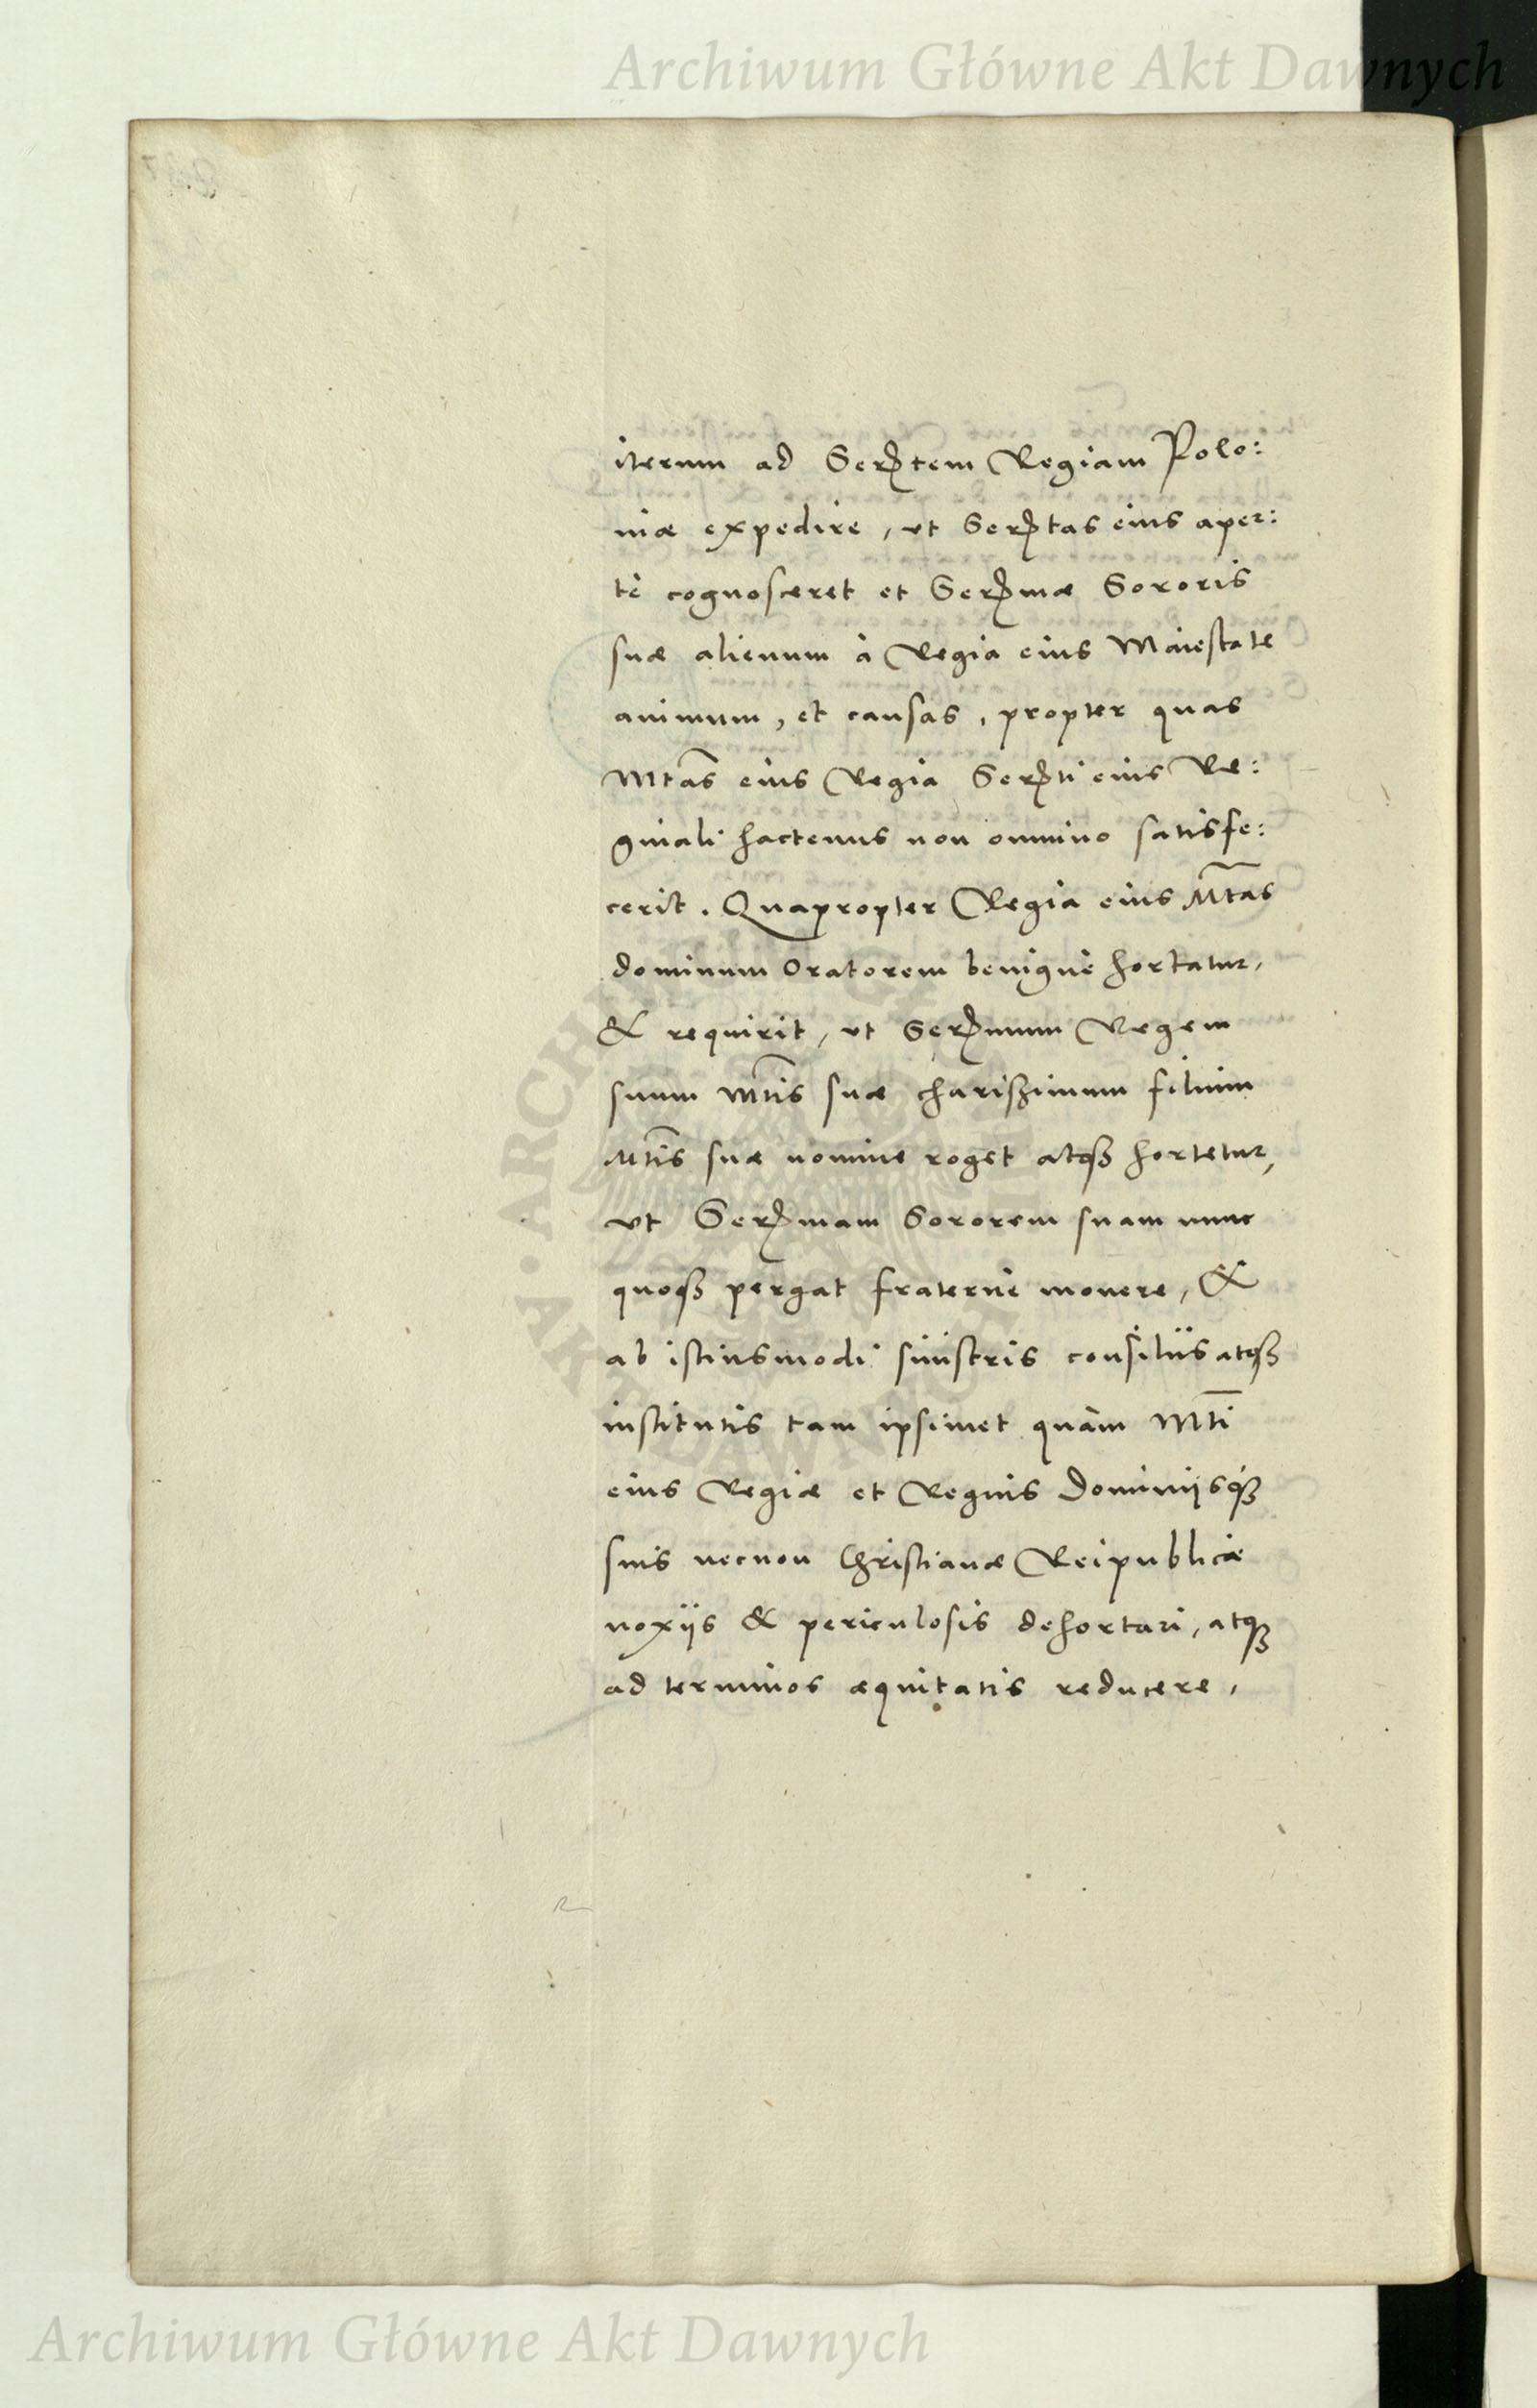 Archiwum Główne Akt Dawnych
iterum ad Serp̃tem Regiam Polo:
niæ expedire, vt Serp̃tas eius aper:
tè cognosceret et Serp̃mæ Sororis
suæ alienum à Regia eius Maiestate
animum, et causas, propter quas
Mtas̃ eius Regia Serp̃ti eius Re:
ginali hactenus non omnino satisfe:
cerit. Quapropter Regia eius Mt̃as
dominum Oratorem benignè hortatur,
& requirit, vt Serp̃mum Regem
suum Mt̃is suæ charißimum filium
Mt̃is suæ nomine roget atqȝ hortetur,
vt Serp̃mam Sororem suam nunc
quoqȝ pergat fraternè monere, &
ab istiusmodi sinistris consiliis atqȝ
institutis tam ipsimet quàm Mt̃i
eius Regiæ et Regnis Dominijsqȝ
suis necnon Christianæ Reipublicæ
noxijs & periculosis dehortari, atqȝ
ad terminos æquitatis reducere,
Archiwum Główne Akt Dawnych